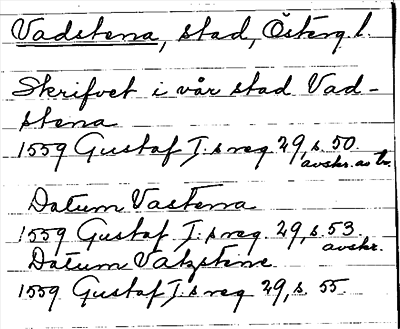 Vadstena, stad, Österg. l.
Skrifvet i vår stad Vad-
stena
1559 Gustaf I:s reg. 29, s. 50.
avskr. av tr.
Datum Vastenna
1559 Gustaf I:s reg. 29, s. 53.
avskr.
Datum Vatzstene
1559 Gustaf I:s reg 29, s. 55.